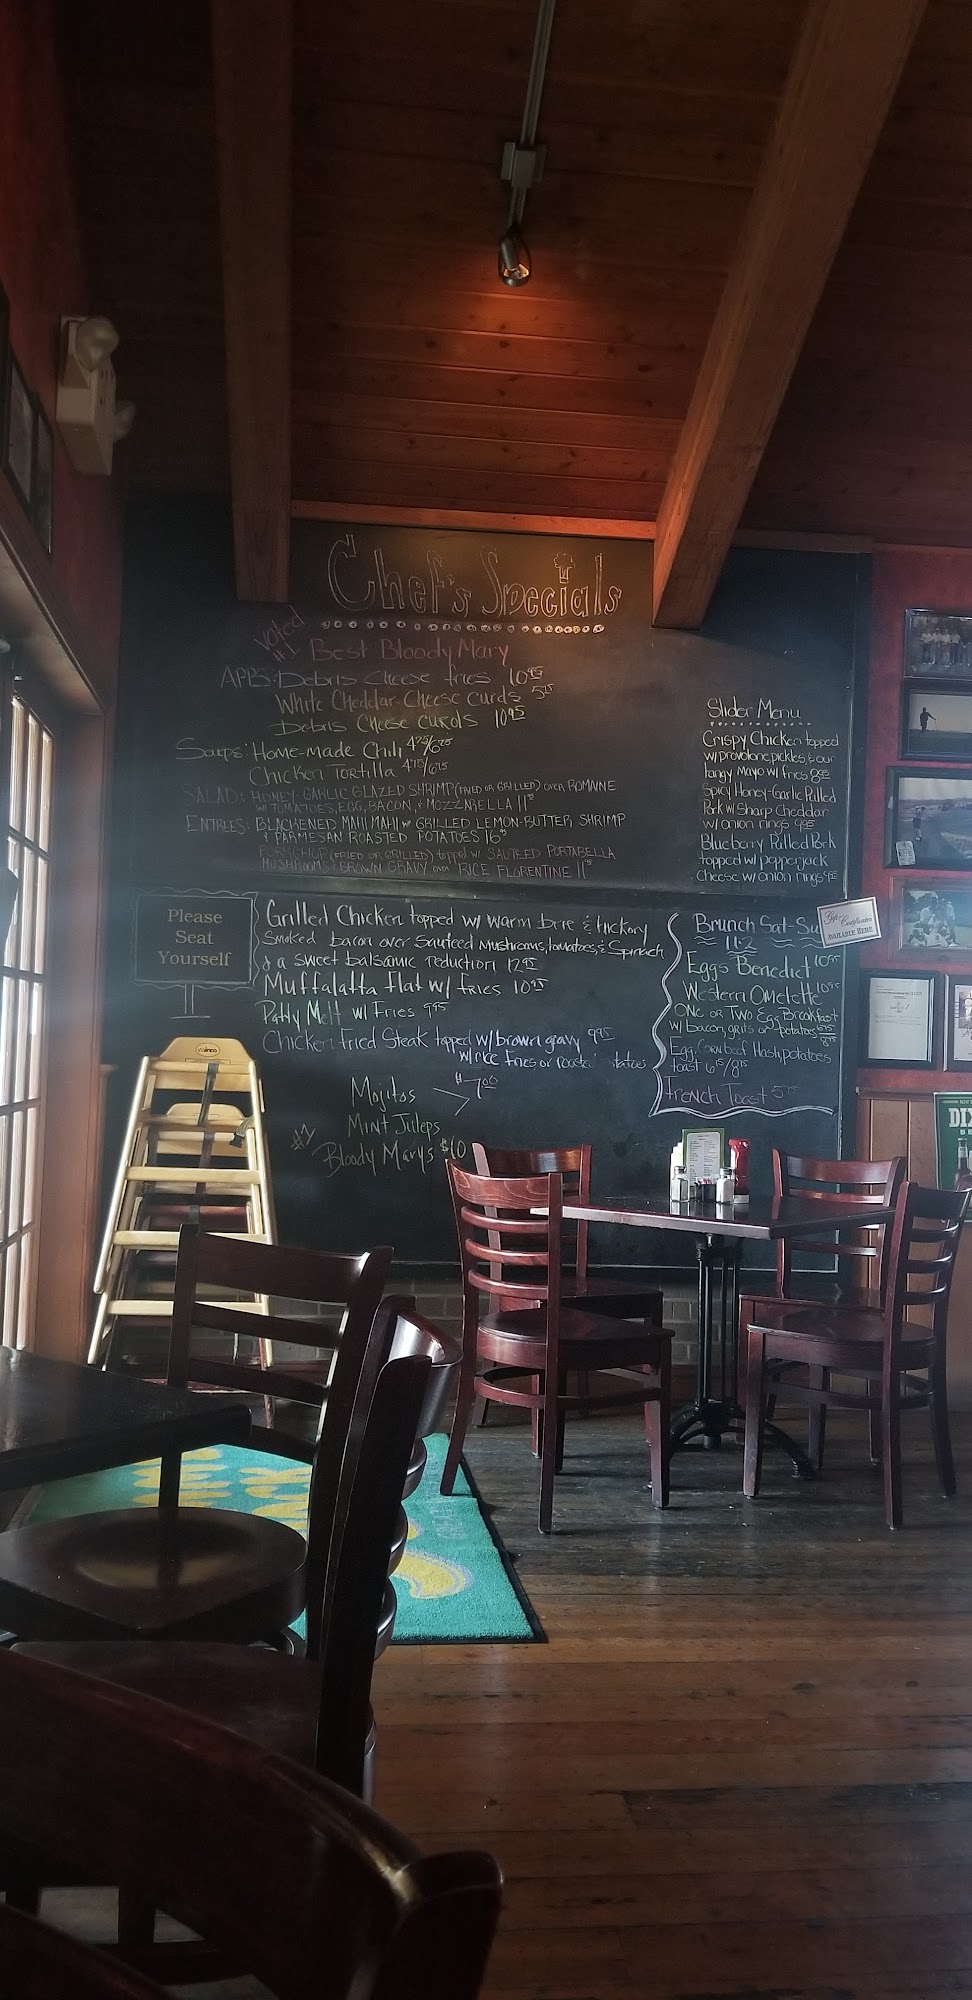 Chef's Specials
Voted
#1 Best Bloody Mary
APPS: Debris Cheese fries 10.95
White Cheddar Cheese curds 5
Debris Cheese curds 10.95
Soups: Home-made Chili 4.75/6.75
Chicken Tortilla 4.75/6.75
SALAD: HONEY GARLIC GLAZED SHRIMP (FRIED OR GRILLED) over ROMAINE
w/ TOMATOES, EGG, BACON, & MOZZARELLA 11
ENTREES: BLACKENED MAHI MAHI w/ GRILLED LEMON-BUTTER SHRIMP
& PARMESAN ROASTED POTATOES 16
PORKCHOP (FRIED OR GRILLED) topped w/ SAUTEED PORTABELLA
MUSHROOMS & BROWN GRAVY over RICE FLORENTINE 11
Slider Menu
Crispy Chicken topped
w/ provolone, pickles, & our
tangy Mayo w/ fries 8.95
Spicy Honey-Garlic Pulled
Pork w/ Sharp Cheddar
w/ onion rings 9.95
Blueberry Pulled Pork
topped w/ pepperjack
cheese w/ onion rings 9.95
Please
Seat
Yourself
Grilled Chicken topped w/ warm brie & hickory
Smoked bacon over Sauteed mushrooms, tomatoes, & Spinach
& a sweet balsamic reduction 12.95
Muffalatta flat w/ fries 10.95
Patty Melt w/ Fries 9.95
Chicken Fried Steak topped w/ brown gravy 9.95
w/ rice Fries or roasted
Mojitos
$7.00
Mint Juleps
#1
Bloody Marys $10
Brunch Sat-Su
11-2
Eggs Benedict 10.95
Western Omelette 10.95
One or Two Egg Breakfast
w/ bacon, grits or potatoes 6.75
8.75
Egg, Cornbeef Hash, potatoes
toast 6.75/8.75
French Toast 5
Gift Certificates
AVAILABLE HERE
Winco
DIX